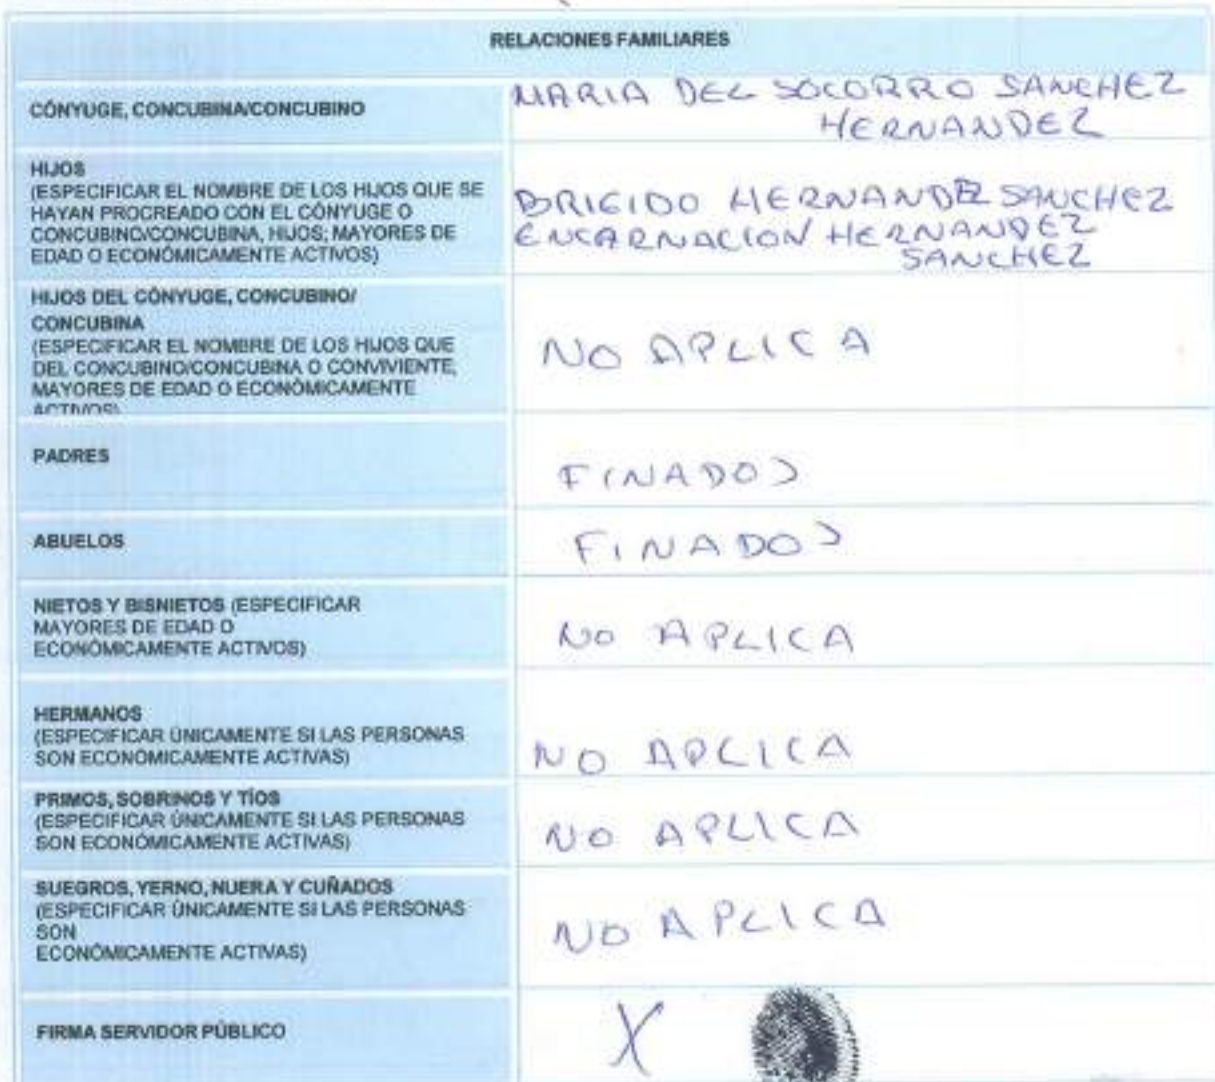 RELACIONES FAMILIARES
CÓNYUGE, CONCUBINA/CONCUBINO
MARIA DEL SOCORRO SANCHEZ
HERNANDEZ
HIJOS
(ESPECIFICAR EL NOMBRE DE LOS HIJOS QUE SE
HAYAN PROCREADO CON EL CÓNYUGE O
CONCUBINO/CONCUBINA, HIJOS; MAYORES DE
EDAD O ECONÓMICAMENTE ACTIVOS)
BRIGIDO HERNANDEZ SANCHEZ
ENCARNACION HERNANDEZ
SANCHEZ
HIJOS DEL CÓNYUGE, CONCUBINO/
CONCUBINA
(ESPECIFICAR EL NOMBRE DE LOS HIJOS QUE
DEL CONCUBINO/CONCUBINA O CONVIVIENTE,
MAYORES DE EDAD O ECONÓMICAMENTE
ACTIVOS)
NO APLICA
PADRES
FINADOS
ABUELOS
FINADOS
NIETOS Y BISNIETOS (ESPECIFICAR
MAYORES DE EDAD O
ECONÓMICAMENTE ACTIVOS)
NO APLICA
HERMANOS
(ESPECIFICAR ÚNICAMENTE SI LAS PERSONAS
SON ECONÓMICAMENTE ACTIVAS)
NO APLICA
PRIMOS, SOBRINOS Y TÍOS
(ESPECIFICAR ÚNICAMENTE SI LAS PERSONAS
SON ECONÓMICAMENTE ACTIVAS)
NO APLICA
SUEGROS, YERNO, NUERA Y CUÑADOS
(ESPECIFICAR ÚNICAMENTE SI LAS PERSONAS
SON
ECONÓMICAMENTE ACTIVAS)
NO APLICA
FIRMA SERVIDOR PÚBLICO
X